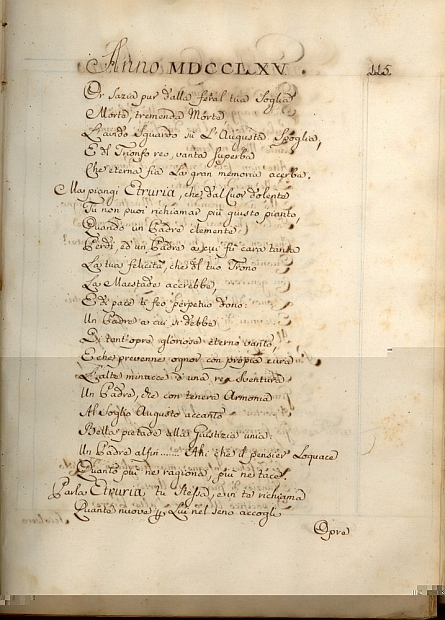 Anno MDCCLXV.
115
Or sazia pur dalla feral tua Soglia
Morte, tremenda Morte,
L'avido Sguardo su L'Augusta Spoglia,
E del Trionfo reo, vanta superba
Che eterna fia La gran memoria acerba.
Mà piangi Etruria, che dal Cuor dolente
Tu non puoi richiamar più giusto pianto,
Quando un Padre clemente
Perdi, ed un Padre a cui fù cara tanto
La tua felicità, che del tuo Trono
La Maestade accrebbe,
E di pace ti feo perpetuo dono:
Un Padre a cui si debbe
Di tent'opre gloriose eterno vanto
E che prevenne ognor con propria cura
L'alte minacce d'una rea Sventura
Un Padre, che con tenera Armonia
Al Soglio Augusto accanto
Bella pietade alla Giustizia unia:
Un Padre alfin...... Ah! che il pensier Loquace
Quanto più ne ragiona, più ne tace.
Parla Etruria tu stessa, e in te richiama
Quante nuove p Lui nel seno accogli
Opre